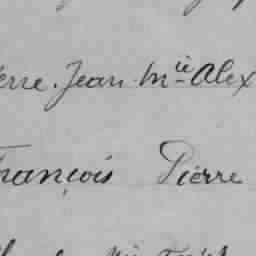 erre. Jean. Mie Alex
François Pierre